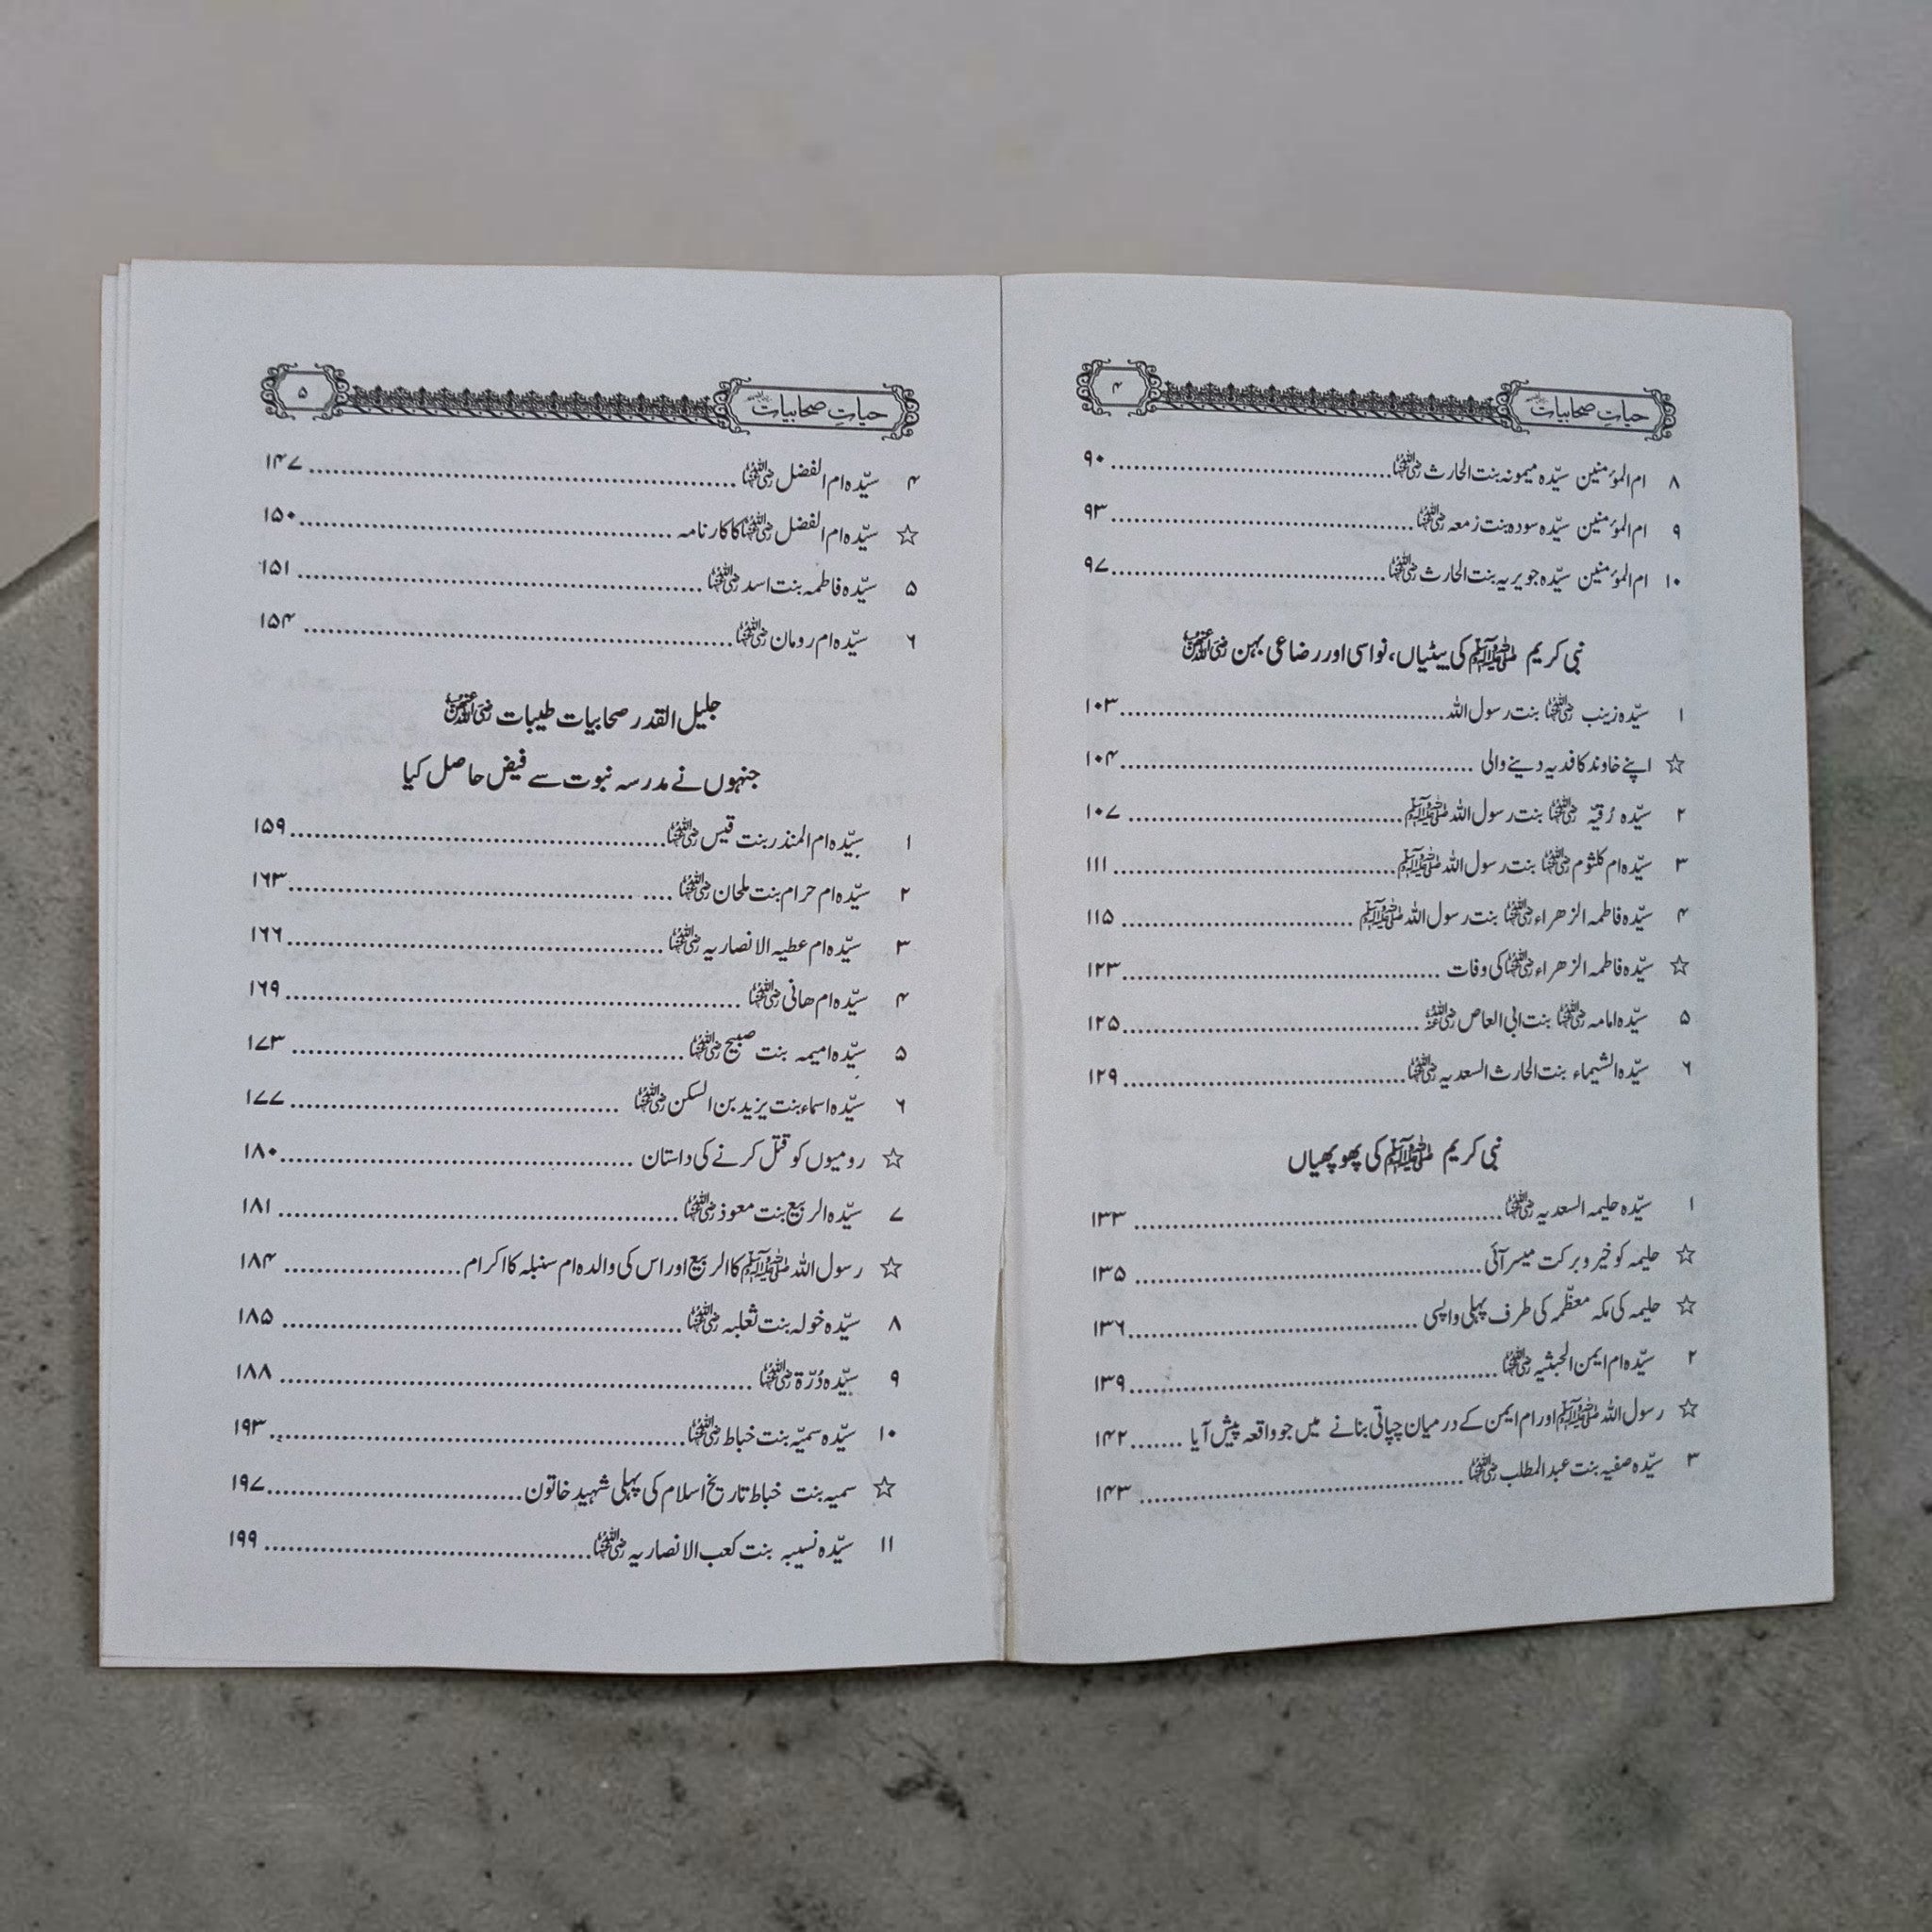 حیاتِ صحابیات ۴
۸ ام المؤمنین سیّدہ میمونہ بنت الحارث رضی اللہ عنہا ........ ۹۰
۹ ام المؤمنین سیّدہ سودہ بنت زمعہ رضی اللہ عنہا ........ ۹۳
۱۰ ام المؤمنین سیّدہ جویریہ بنت الحارث رضی اللہ عنہا ........ ۹۷
نبی کریم ﷺ کی بیٹیاں، نواسی اور رضاعی بہن رضی اللہ عنہن
۱ سیّدہ زینب رضی اللہ عنہا بنت رسول اللہ ........ ۱۰۳
☆ اپنے خاوند کا فدیہ دینے والی ........ ۱۰۴
۲ سیّدہ رُقیّہ رضی اللہ عنہا بنت رسول اللہ ﷺ ........ ۱۰۷
۳ سیّدہ ام کلثوم رضی اللہ عنہا بنت رسول اللہ ﷺ ........ ۱۱۱
۴ سیّدہ فاطمہ الزھراء رضی اللہ عنہا بنت رسول اللہ ﷺ ........ ۱۱۵
☆ سیّدہ فاطمہ الزھراء رضی اللہ عنہا کی وفات ........ ۱۲۳
۵ سیّدہ امامہ رضی اللہ عنہا بنت ابی العاص رضی اللہ عنہ ........ ۱۲۵
۶ سیّدہ الشیماء بنت الحارث السعدیہ رضی اللہ عنہا ........ ۱۲۹
نبی کریم ﷺ کی پھوپھیاں
۱ سیّدہ حلیمہ السعدیہ رضی اللہ عنہا ........ ۱۳۳
☆ حلیمہ کو خیر و برکت میسر آئی ........ ۱۳۵
☆ حلیمہ کی مکہ معظّمہ کی طرف پہلی واپسی ........ ۱۳۶
۲ سیّدہ ام ایمن الحبشیہ رضی اللہ عنہا ........ ۱۳۹
☆ رسول اللہ ﷺ اور ام ایمن کے درمیان چپاتی بنانے میں جو واقعہ پیش آیا ........ ۱۴۲
۳ سیّدہ صفیہ بنت عبدالمطلب رضی اللہ عنہا ........ ۱۴۳
حیاتِ صحابیات ۵
۴ سیّدہ ام الفضل رضی اللہ عنہا ........ ۱۴۷
☆ سیّدہ ام الفضل رضی اللہ عنہا کا کارنامہ ........ ۱۵۰
۵ سیّدہ فاطمہ بنت اسد رضی اللہ عنہا ........ ۱۵۱
۶ سیّدہ ام رومان رضی اللہ عنہا ........ ۱۵۴
جلیل القدر صحابیات طیبات رضی اللہ عنہن
جنہوں نے مدرسہ نبوت سے فیض حاصل کیا
۱ سیّدہ ام المنذر بنت قیس رضی اللہ عنہا ........ ۱۵۹
۲ سیّدہ ام حرام بنت ملحان رضی اللہ عنہا ........ ۱۶۳
۳ سیّدہ ام عطیہ الانصاریہ رضی اللہ عنہا ........ ۱۶۶
۴ سیّدہ ام ھانی رضی اللہ عنہا ........ ۱۶۹
۵ سیّدہ امیمہ بنت صبیح رضی اللہ عنہا ........ ۱۷۳
۶ سیّدہ اسماء بنت یزید بن السکن رضی اللہ عنہا ........ ۱۷۷
☆ رومیوں کو قتل کرنے کی داستان ........ ۱۸۰
۷ سیّدہ الربیع بنت معوذ رضی اللہ عنہا ........ ۱۸۱
☆ رسول اللہ ﷺ کا الربیع اور اس کی والدہ ام سنبلہ کا اکرام ........ ۱۸۴
۸ سیّدہ خولہ بنت ثعلبہ رضی اللہ عنہا ........ ۱۸۵
۹ سیّدہ دُرّۃ رضی اللہ عنہا ........ ۱۸۸
۱۰ سیّدہ سمیّہ بنت خباط رضی اللہ عنہا ........ ۱۹۳
☆ سمیہ بنت خباط تاریخ اسلام کی پہلی شہید خاتون ........ ۱۹۷
۱۱ سیّدہ نسیبہ بنت کعب الانصاریہ رضی اللہ عنہا ........ ۱۹۹